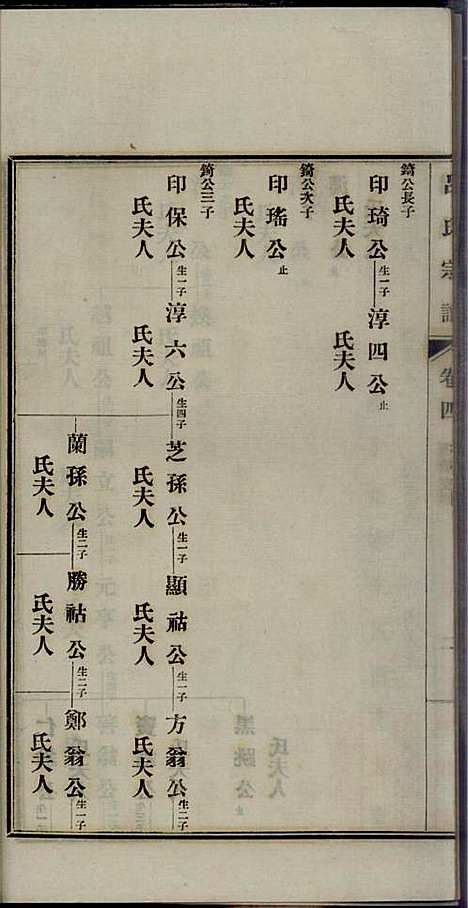 呂氏宗譜 卷四
錡公長子
印琦公 生一子 淳四公 止
氏夫人 氏夫人
錡公次子
印瑤公 止
氏夫人
錡公三子
印保公 生一子 淳六公 生四子 芝孫公 生一子 顯祜公 生一子 方翁公 生二子
氏夫人 氏夫人 氏夫人 氏夫人 氏夫人
蘭孫公 生二子 勝祜公 生二子 鄭翁公 生一子
氏夫人 氏夫人 氏夫人